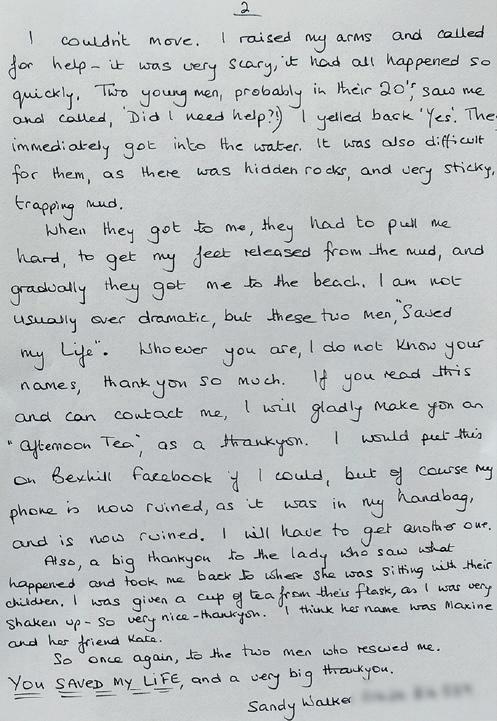 2
I couldn't move. I raised my arms and called
for help - it was very scary, it had all happened so
quickly. Two young men, probably in their 20's, saw me
and called, 'Did I need help?!) I yelled back 'Yes'. The
immediately got into the water. It was also difficult
for them, as there was hidden rocks, and very sticky,
trapping mud.
When they got to me, they had to pull me
hard, to get my feet released from the mud, and
gradually they got me to the beach. I am not
usually over dramatic, but these two men, "Saved
my Life". Whoever you are, I do not know your
names, thank you so much. If you read this
and can contact me, I will gladly make you an
"Afternoon Tea", as a thankyou. I would put this
on Bexhill Facebook if I could, but of course my
phone is now ruined, as it was in my handbag,
and is now ruined. I will have to get another one.
Also, a big thankyou to the lady who saw what
happened and took me back to where she was sitting with their
children. I was given a cup of tea from their flask, as I was very
shaken up - so very nice - thankyou. I think her name was Maxine
and her friend Kate.
So once again, to the two men who rescued me.
YOU SAVED MY LIFE, and a very big thankyou.
Sandy Walker